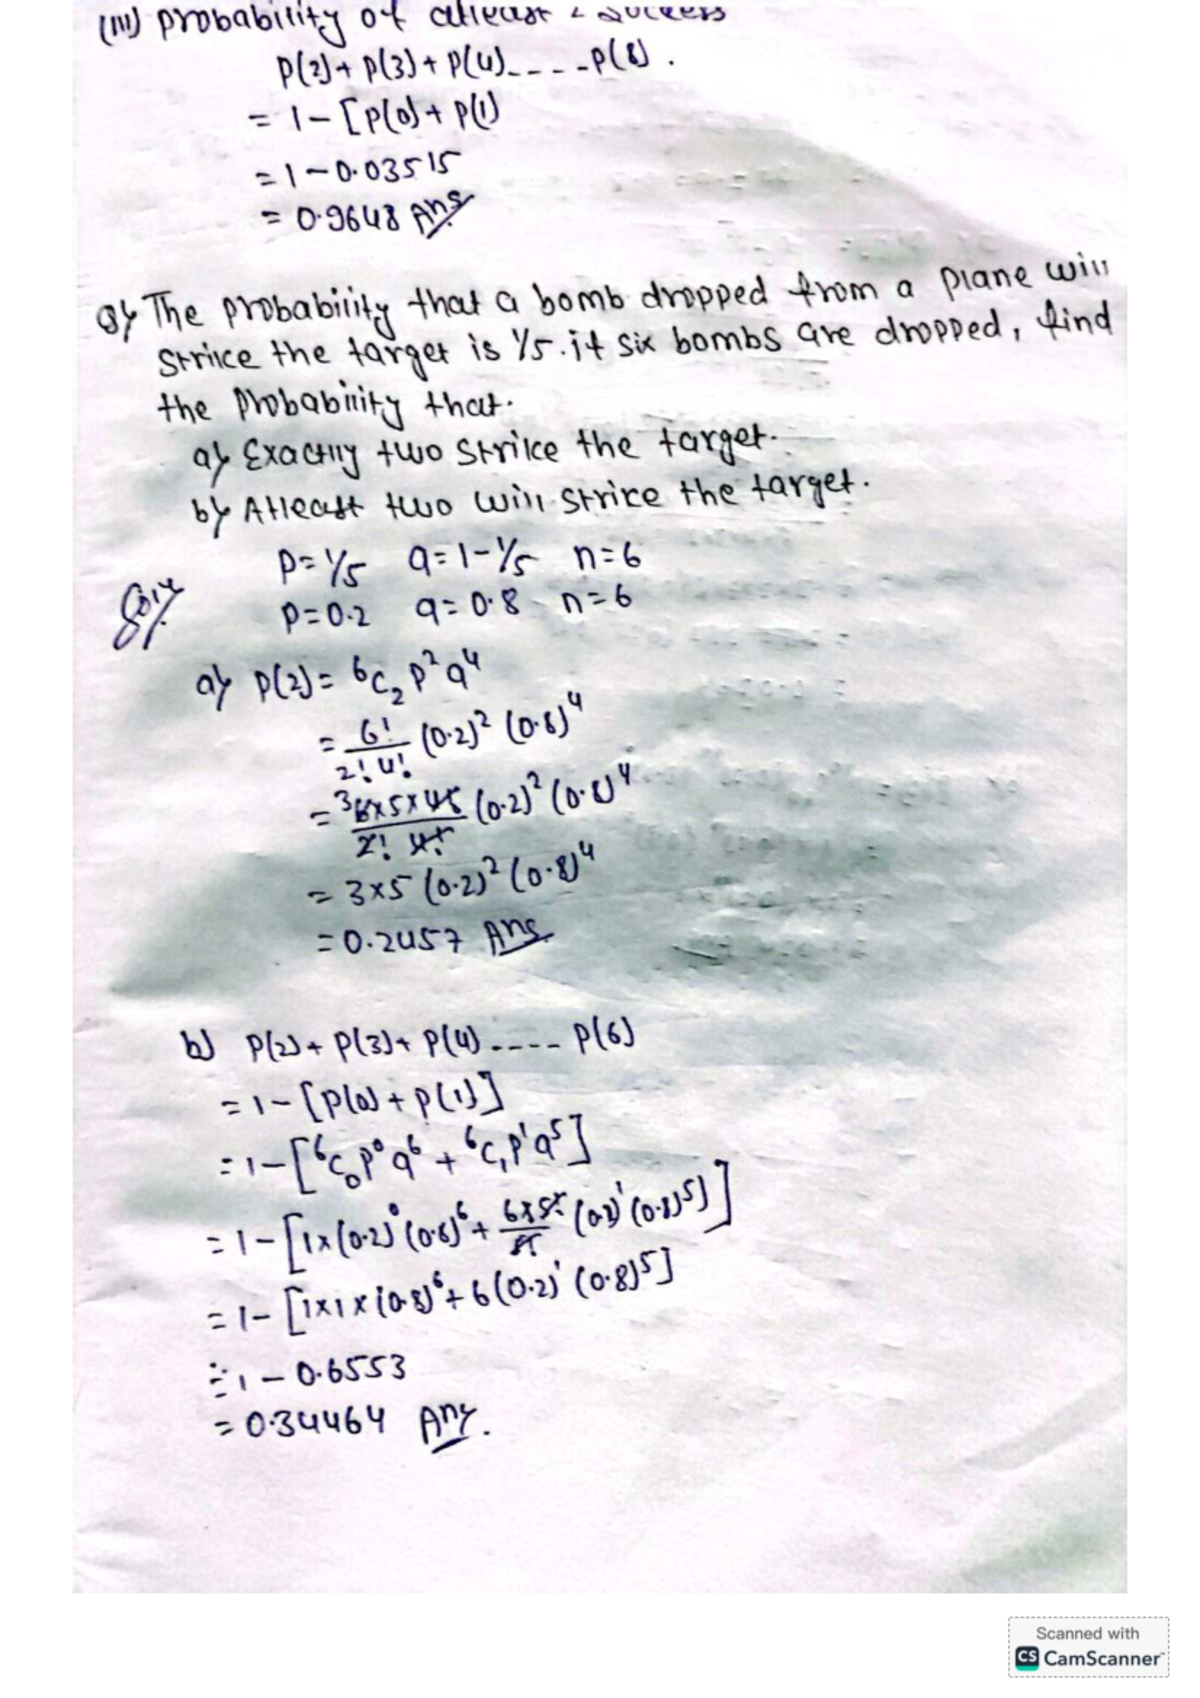 (iii) probability of atleast 2 success
P(2)+ P(3)+ P(4)_ _ _ _ _P(8) .
= 1 - [P(0)+ P(1)
= 1 - 0.03515
= 0.9648 Ans
Q) The probability that a bomb dropped from a plane will
strike the target is 1/5. if six bombs are dropped, find
the probability that.
a) Exactly two strike the target.
b) Atleast two will strice the target.
P = 1/5 q = 1 - 1/5 n = 6
Solⁿ
P = 0.2 q = 0.8 n = 6
a) P(2) = ⁶C₂ P² q⁴
= 6!/2! 4! (0.2)² (0.8)⁴
= ³6×5×4!/2! 4! (0.2)² (0.8)⁴
= 3×5 (0.2)² (0.8)⁴
= 0.2457 Ans
b) P(2) + P(3) + P(4) ---- P(6)
= 1 - [P(0) + P(1)]
= 1 - [⁶C₀ P⁰ q⁶ + ⁶C₁ P¹ q⁵]
= 1 - [1×(0.2)⁰ (0.8)⁶ + 6×5!/5! (0.2)¹ (0.8)⁵)]
= 1 - [1×1×(0.8)⁶ + 6(0.2)¹ (0.8)⁵]
= 1 - 0.6553
= 0.34464 Ans.
Scanned with
CS CamScanner